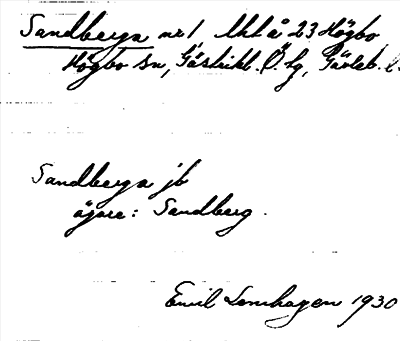 Sandberga nr 1 Utl å 23 Högbo
Högbo sn, Gästrikl. Ö. hg, Gävleb. l.
Sandberga jb
ägare: Sandberg.
Emil Lenhagen 1930